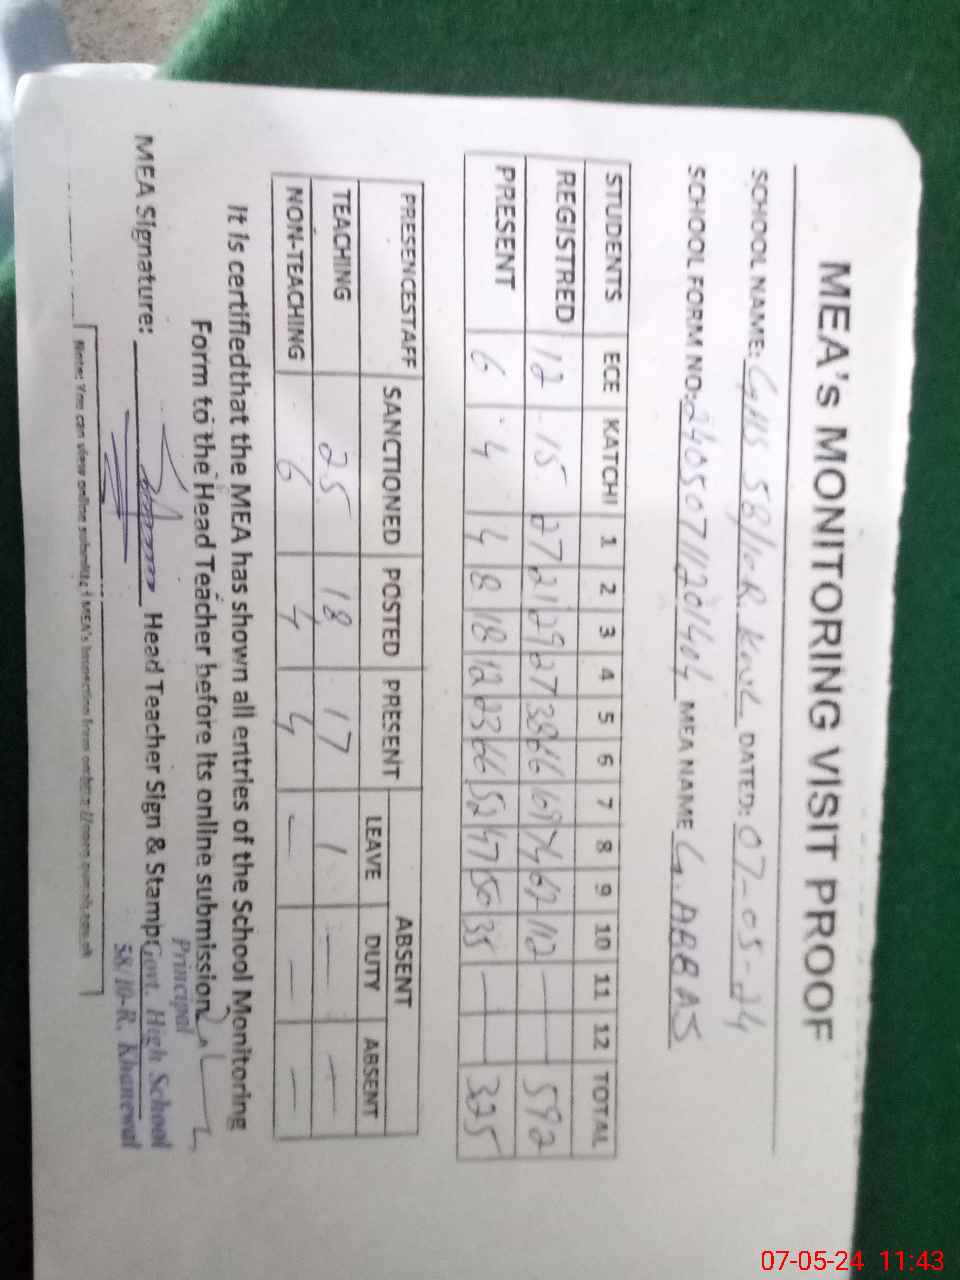 MEA's MONITORING VISIT PROOF
SCHOOL NAME: GHS 58/10.R. DATED: 07-05-24
SCHOOL FORM NO: MEA NAME G. ABBAS
STUDENTS ECE KATCHI 1 2 3 4 5 6 7 8 9 10 11 12 TOTAL
REGISTRED 12 15 27 21 29 27 38 66 69 74 62 112 — — 592
PRESENT 6 4 4 8 18 12 23 66 52 47 50 35 — — 325
PRESENCESTAFF SANCTIONED POSTED PRESENT ABSENT
LEAVE DUTY ABSENT
TEACHING 25 18 17 1 — —
NON-TEACHING 6 4 4 — — —
It is certifiedthat the MEA has shown all entries of the School Monitoring
Form to the Head Teacher before its online submission
MEA Signature: Head Teacher Sign & Stamp
Principal
Govt. High School
58/10-R. Khanewal
Note: You can view online submitted MEA's Inspection from
07-05-24 11:43